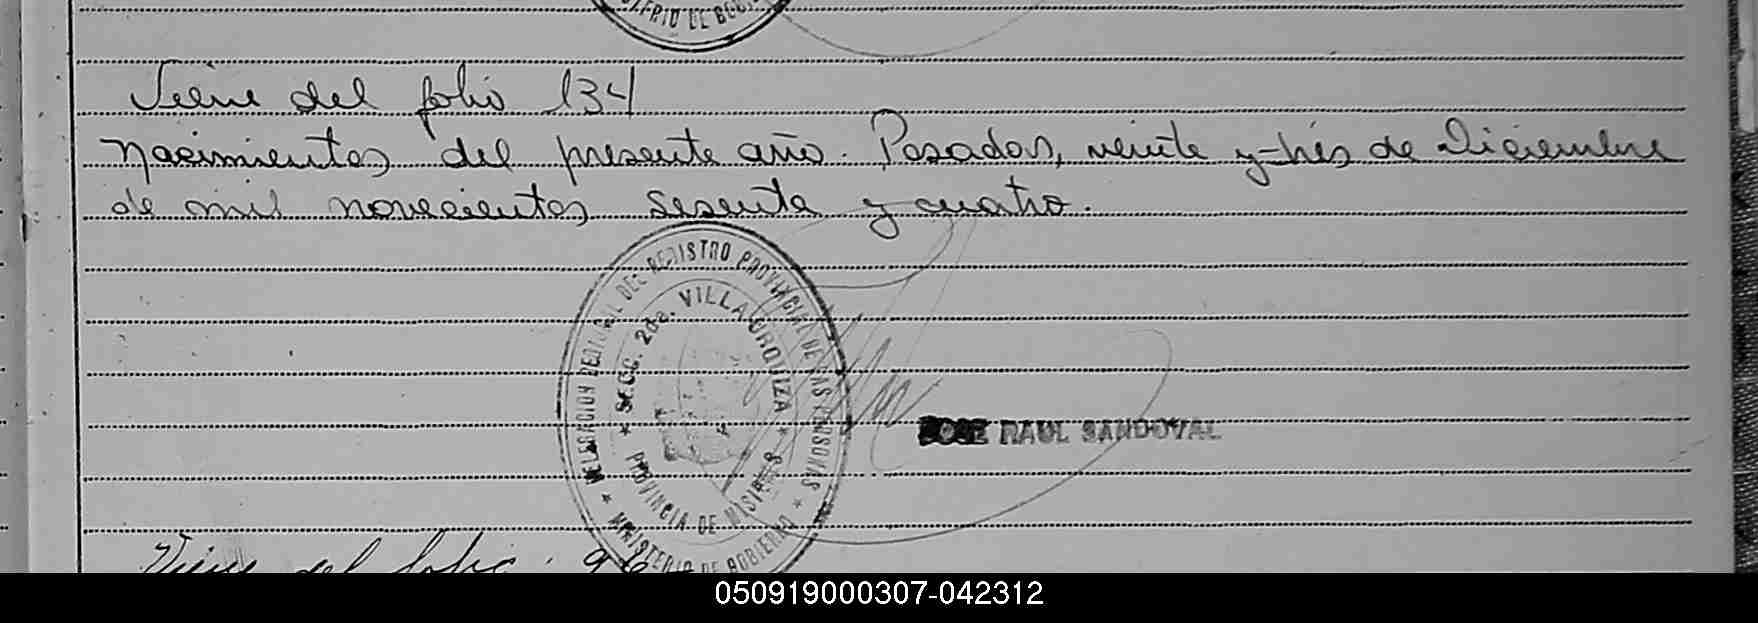 MINISTERIO DE GOBIERNO
Viene del folio 134
Nacimientos del presente año. Posadas, veinte y tres de Diciembre
de mil novecientos sesenta y cuatro.
DELEGACION REGIONAL DEL REGISTRO PROVINCIAL DE LAS PERSONAS
* SECC. 2da. VILLA URQUIZA *
PROVINCIA DE MISIONES
* MINISTERIO DE GOBIERNO *
JOSE RAUL SANDOVAL
Viene del folio
050919000307-042312